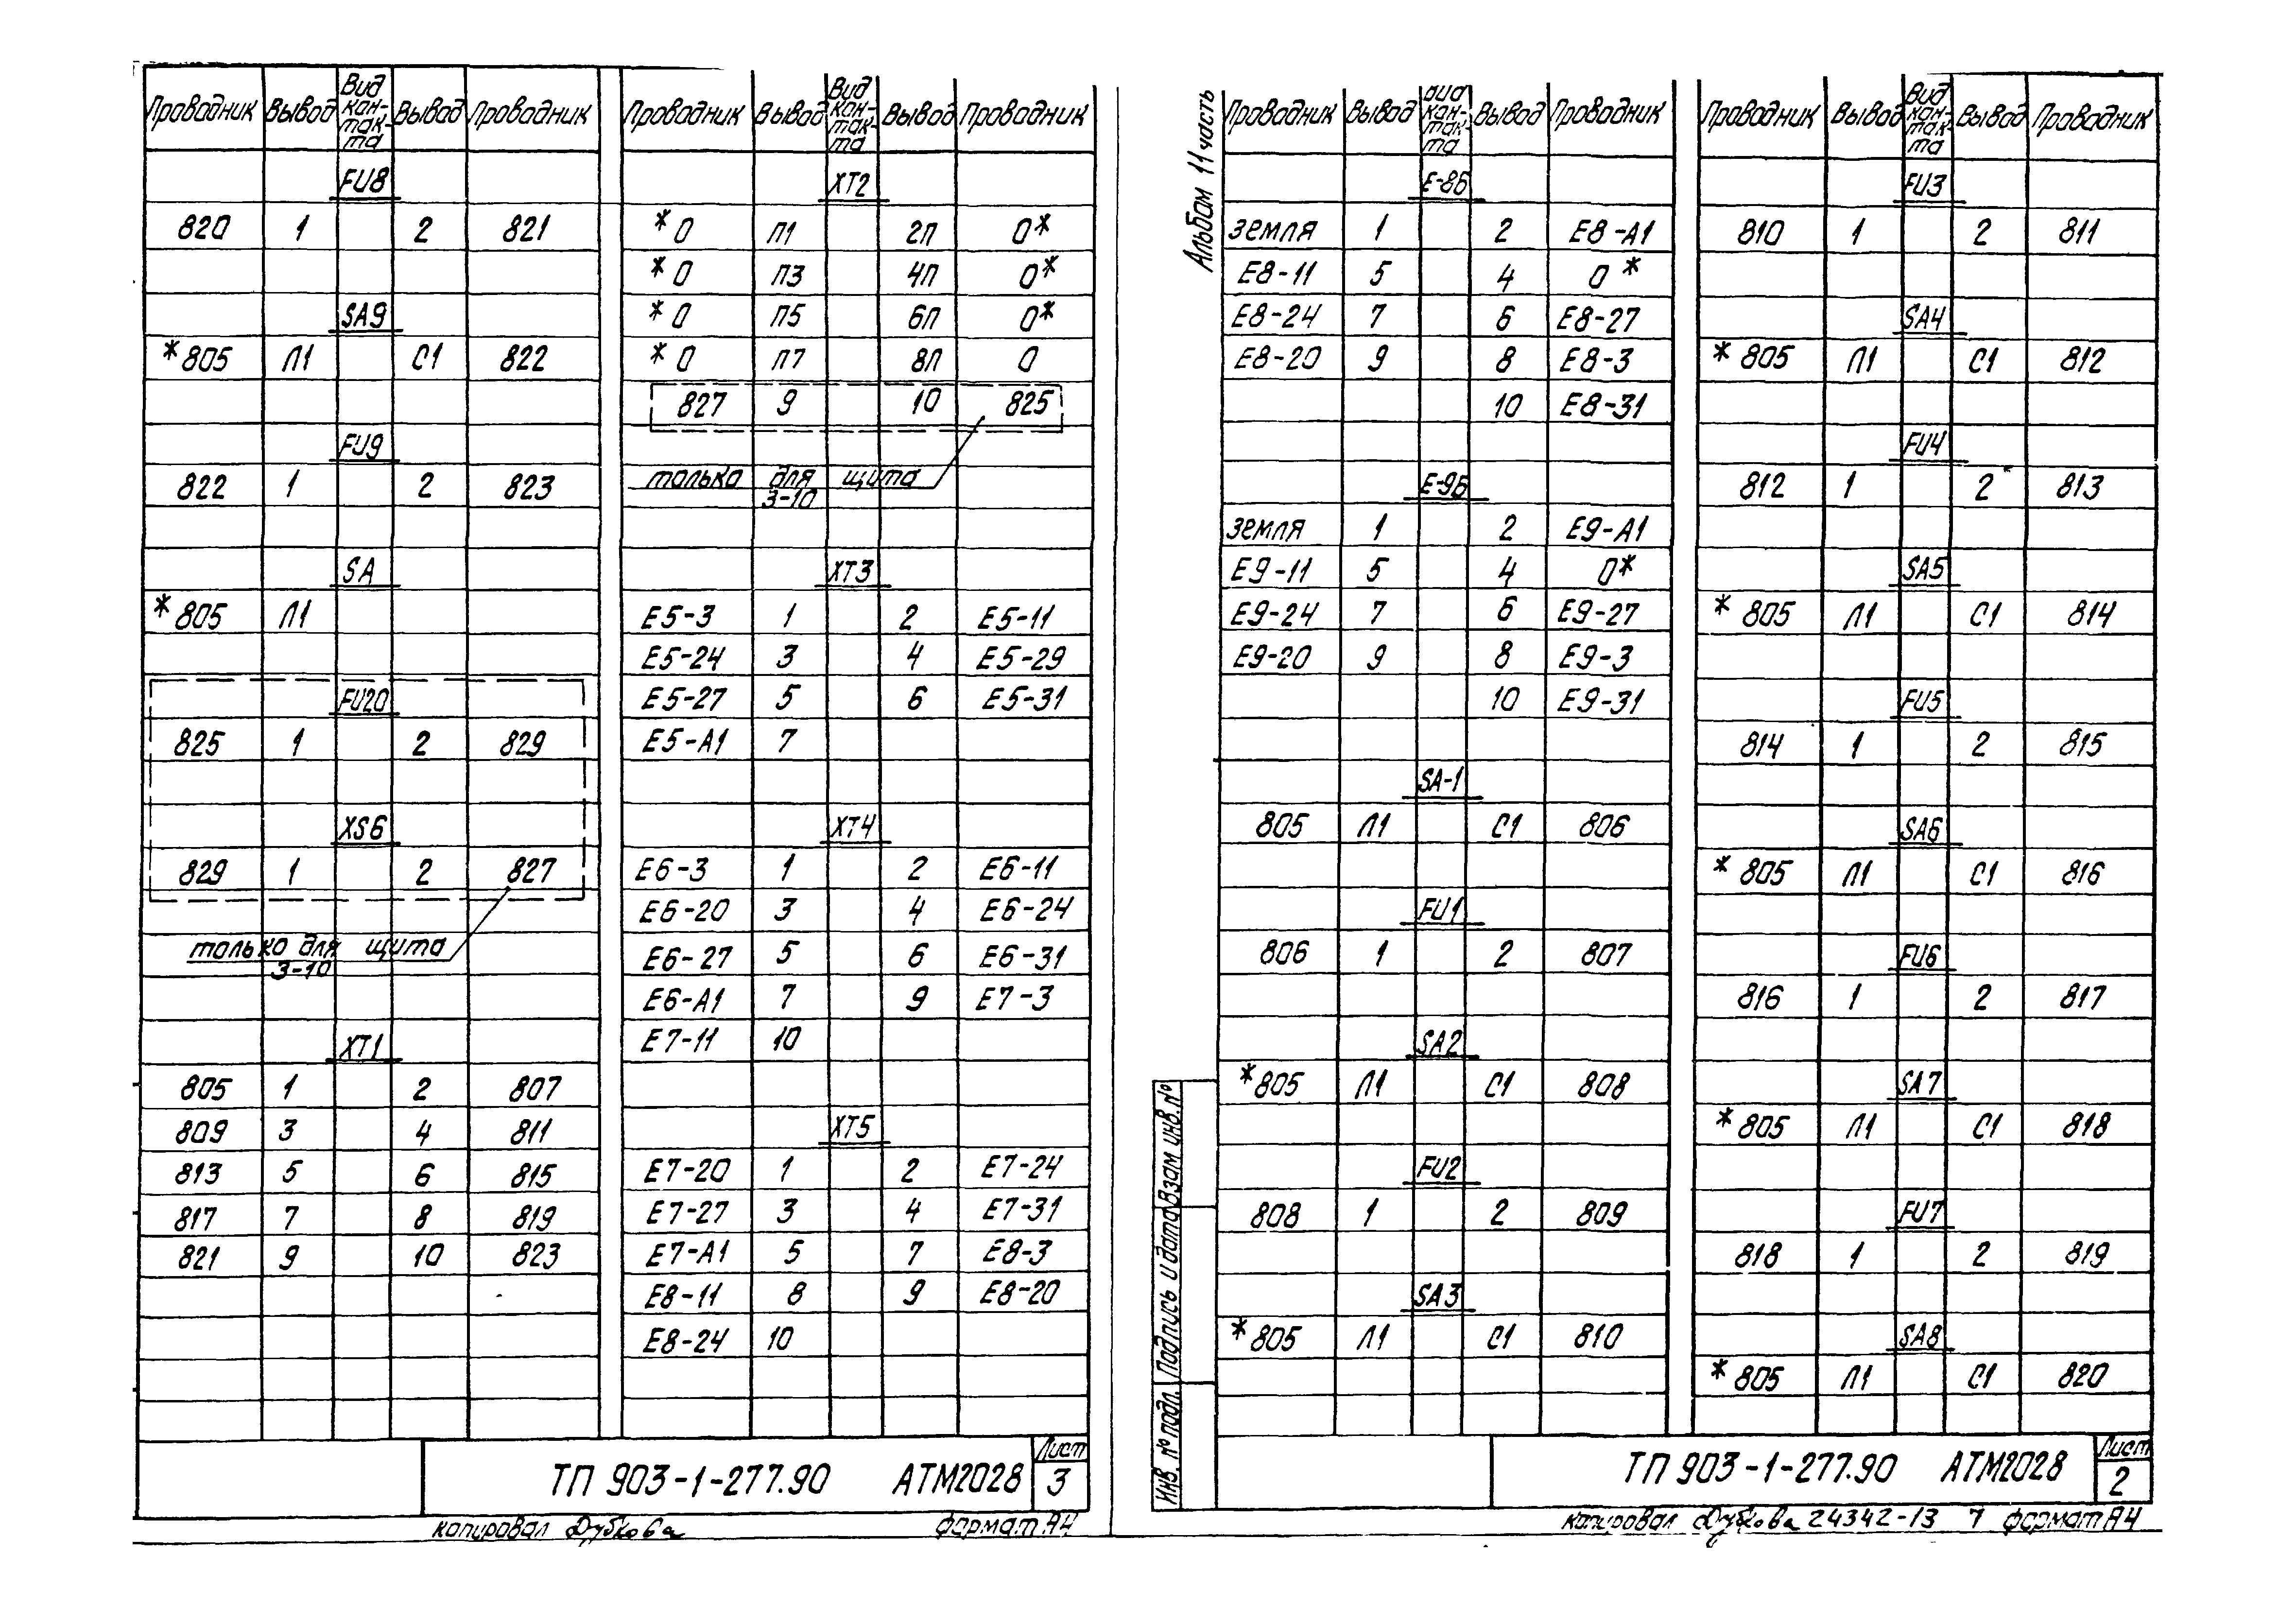 Проводник Вывод Вид кон-так-та Вывод Проводник
FU8
820 1 2 821
SA9
*805 Л1 С1 822
FU9
822 1 2 823
SA
*805 Л1
FU20
825 1 2 829
XS6
829 1 2 827
только для щита
3-10
XT1
805 1 2 807
809 3 4 811
813 5 6 815
817 7 8 819
821 9 10 823
Проводник Вывод Вид кон-так-та Вывод Проводник
XT2
*0 П1 2П 0*
*0 П3 4П 0*
*0 П5 6П 0*
*0 П7 8П 0
827 9 10 825
только для щита
3-10
XT3
E5-3 1 2 E5-11
E5-24 3 4 E5-29
E5-27 5 6 E5-31
E5-A1 7
XT4
E6-3 1 2 E6-11
E6-20 3 4 E6-24
E6-27 5 6 E6-31
E6-A1 7 9 E7-3
E7-11 10
XT5
E7-20 1 2 E7-24
E7-27 3 4 E7-31
E7-A1 5 7 E8-3
E8-11 8 9 E8-20
E8-24 10
ТП 903-1-277.90 АТМ2028
Лист
3
копировал Дубкова формат А4
Альбом 11 часть
Проводник Вывод Вид кон-так-та Вывод Проводник
E-8Б
земля 1 2 E8-A1
E8-11 5 4 0*
E8-24 7 6 E8-27
E8-20 9 8 E8-3
10 E8-31
E-9Б
земля 1 2 E9-A1
E9-11 5 4 0*
E9-24 7 6 E9-27
E9-20 9 8 E9-3
10 E9-31
SA-1
805 Л1 С1 806
FU1
806 1 2 807
SA2
*805 Л1 С1 808
FU2
808 1 2 809
SA3
*805 Л1 С1 810
Проводник Вывод Вид кон-так-та Вывод Проводник
FU3
810 1 2 811
SA4
*805 Л1 С1 812
FU4
812 1 2 813
SA5
*805 Л1 С1 814
FU5
814 1 2 815
SA6
*805 Л1 С1 816
FU6
816 1 2 817
SA7
*805 Л1 С1 818
FU7
818 1 2 819
SA8
*805 Л1 С1 820
Инв. № подл. Подпись и дата Взам инв. №
ТП 903-1-277.90 АТМ2028
Лист
2
копировал Дубкова 24342-13 7 формат А4